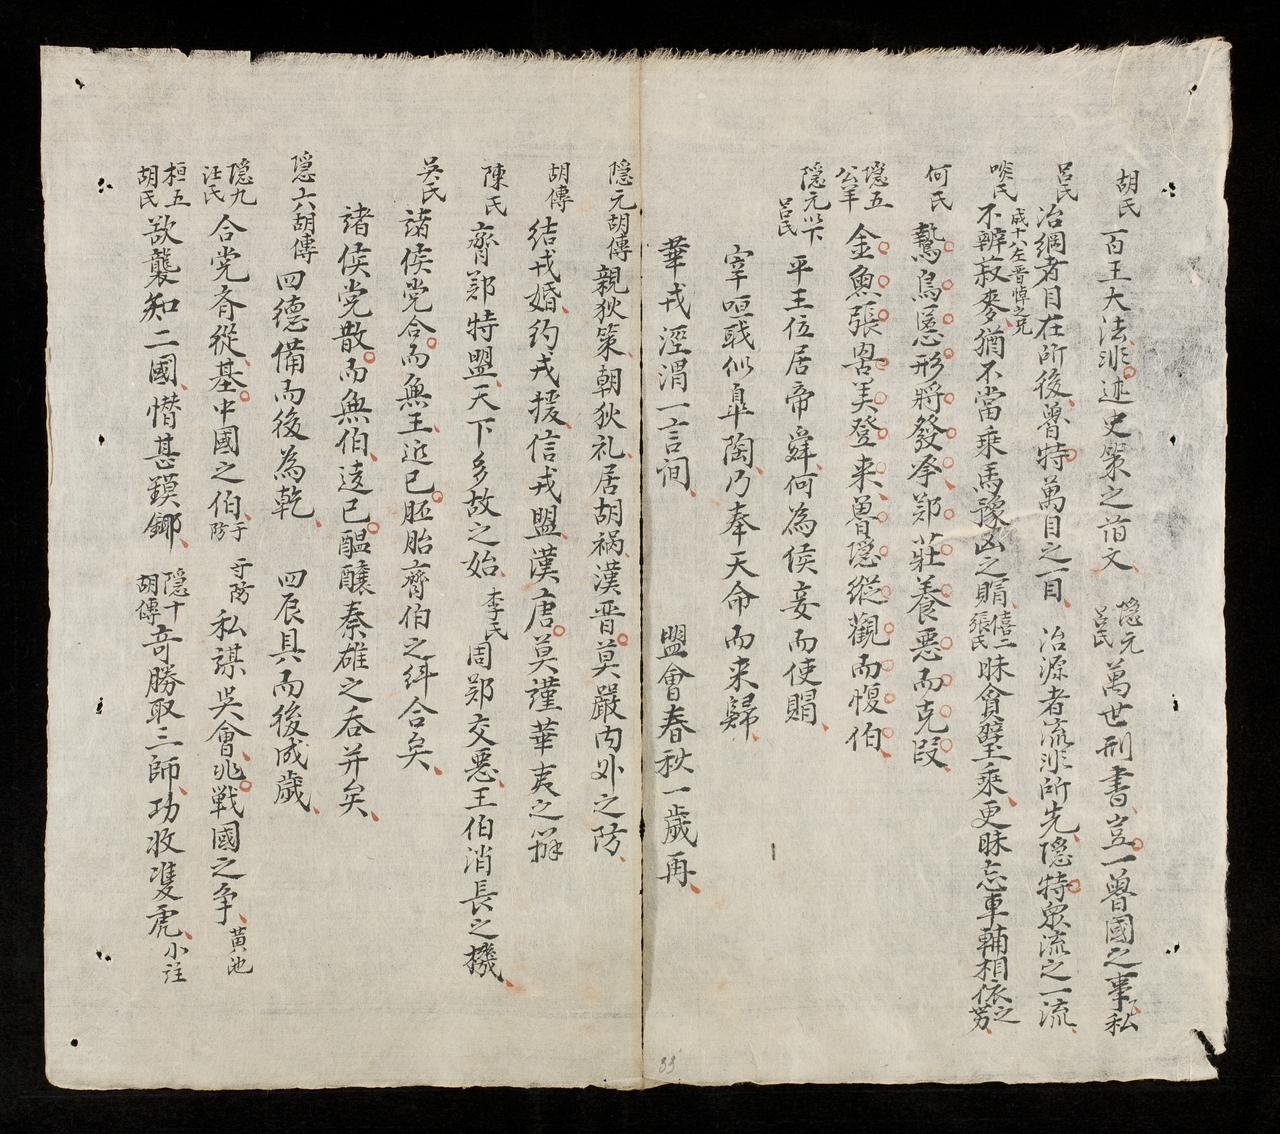 胡氏 百王大法非述史策之旧文 隐元吕氏 萬世刑書豈一魯國之事私
吕氏 治綱者目在所後魯特萬目之一目 治源者流非所先隐特衆流之一流
啖氏 不辨菽麥 成十八左晋悼之兄 猶不當乘馬豫凶之賵 僖二張氏 昧貪璧乘更昧忘車輔相依之势
何氏 鷙鳥匿形將發矛郑莊養惡而克段
隐五公羊 金魚張罟美登来魯隐縱觀而愎伯
隐元 吕氏 平王位居帝舜何為侯妾而使賵
宰咺戝似臯陶乃奉天命而来歸
華戎涇渭一言间 盟會春秋一歲再
隐元胡傳 親狄策朝狄礼居胡祸漢晋莫嚴内外之防
胡傳 结戎婚约戎援信戎盟漢唐莫謹華夷之辨
陳氏 齊郑特盟天下多故之始 李氏 周郑交惡王伯消長之機
吳氏 诸侯党合而無王近已胚胎齊伯之纠合矣
诸侯党散而無伯遠已醖釀秦雄之吞并矣
隐六胡傳 四德備而後為乾 四辰具而後成歲
隐九汪氏 合党斉從基中國之伯 于防 于防 私謀吳會兆戰國之争 黄池
桓五胡氏 欲襲知二國憯甚鏌鎁 隐十胡傳 奇勝取三師功收隻虎 小註
33